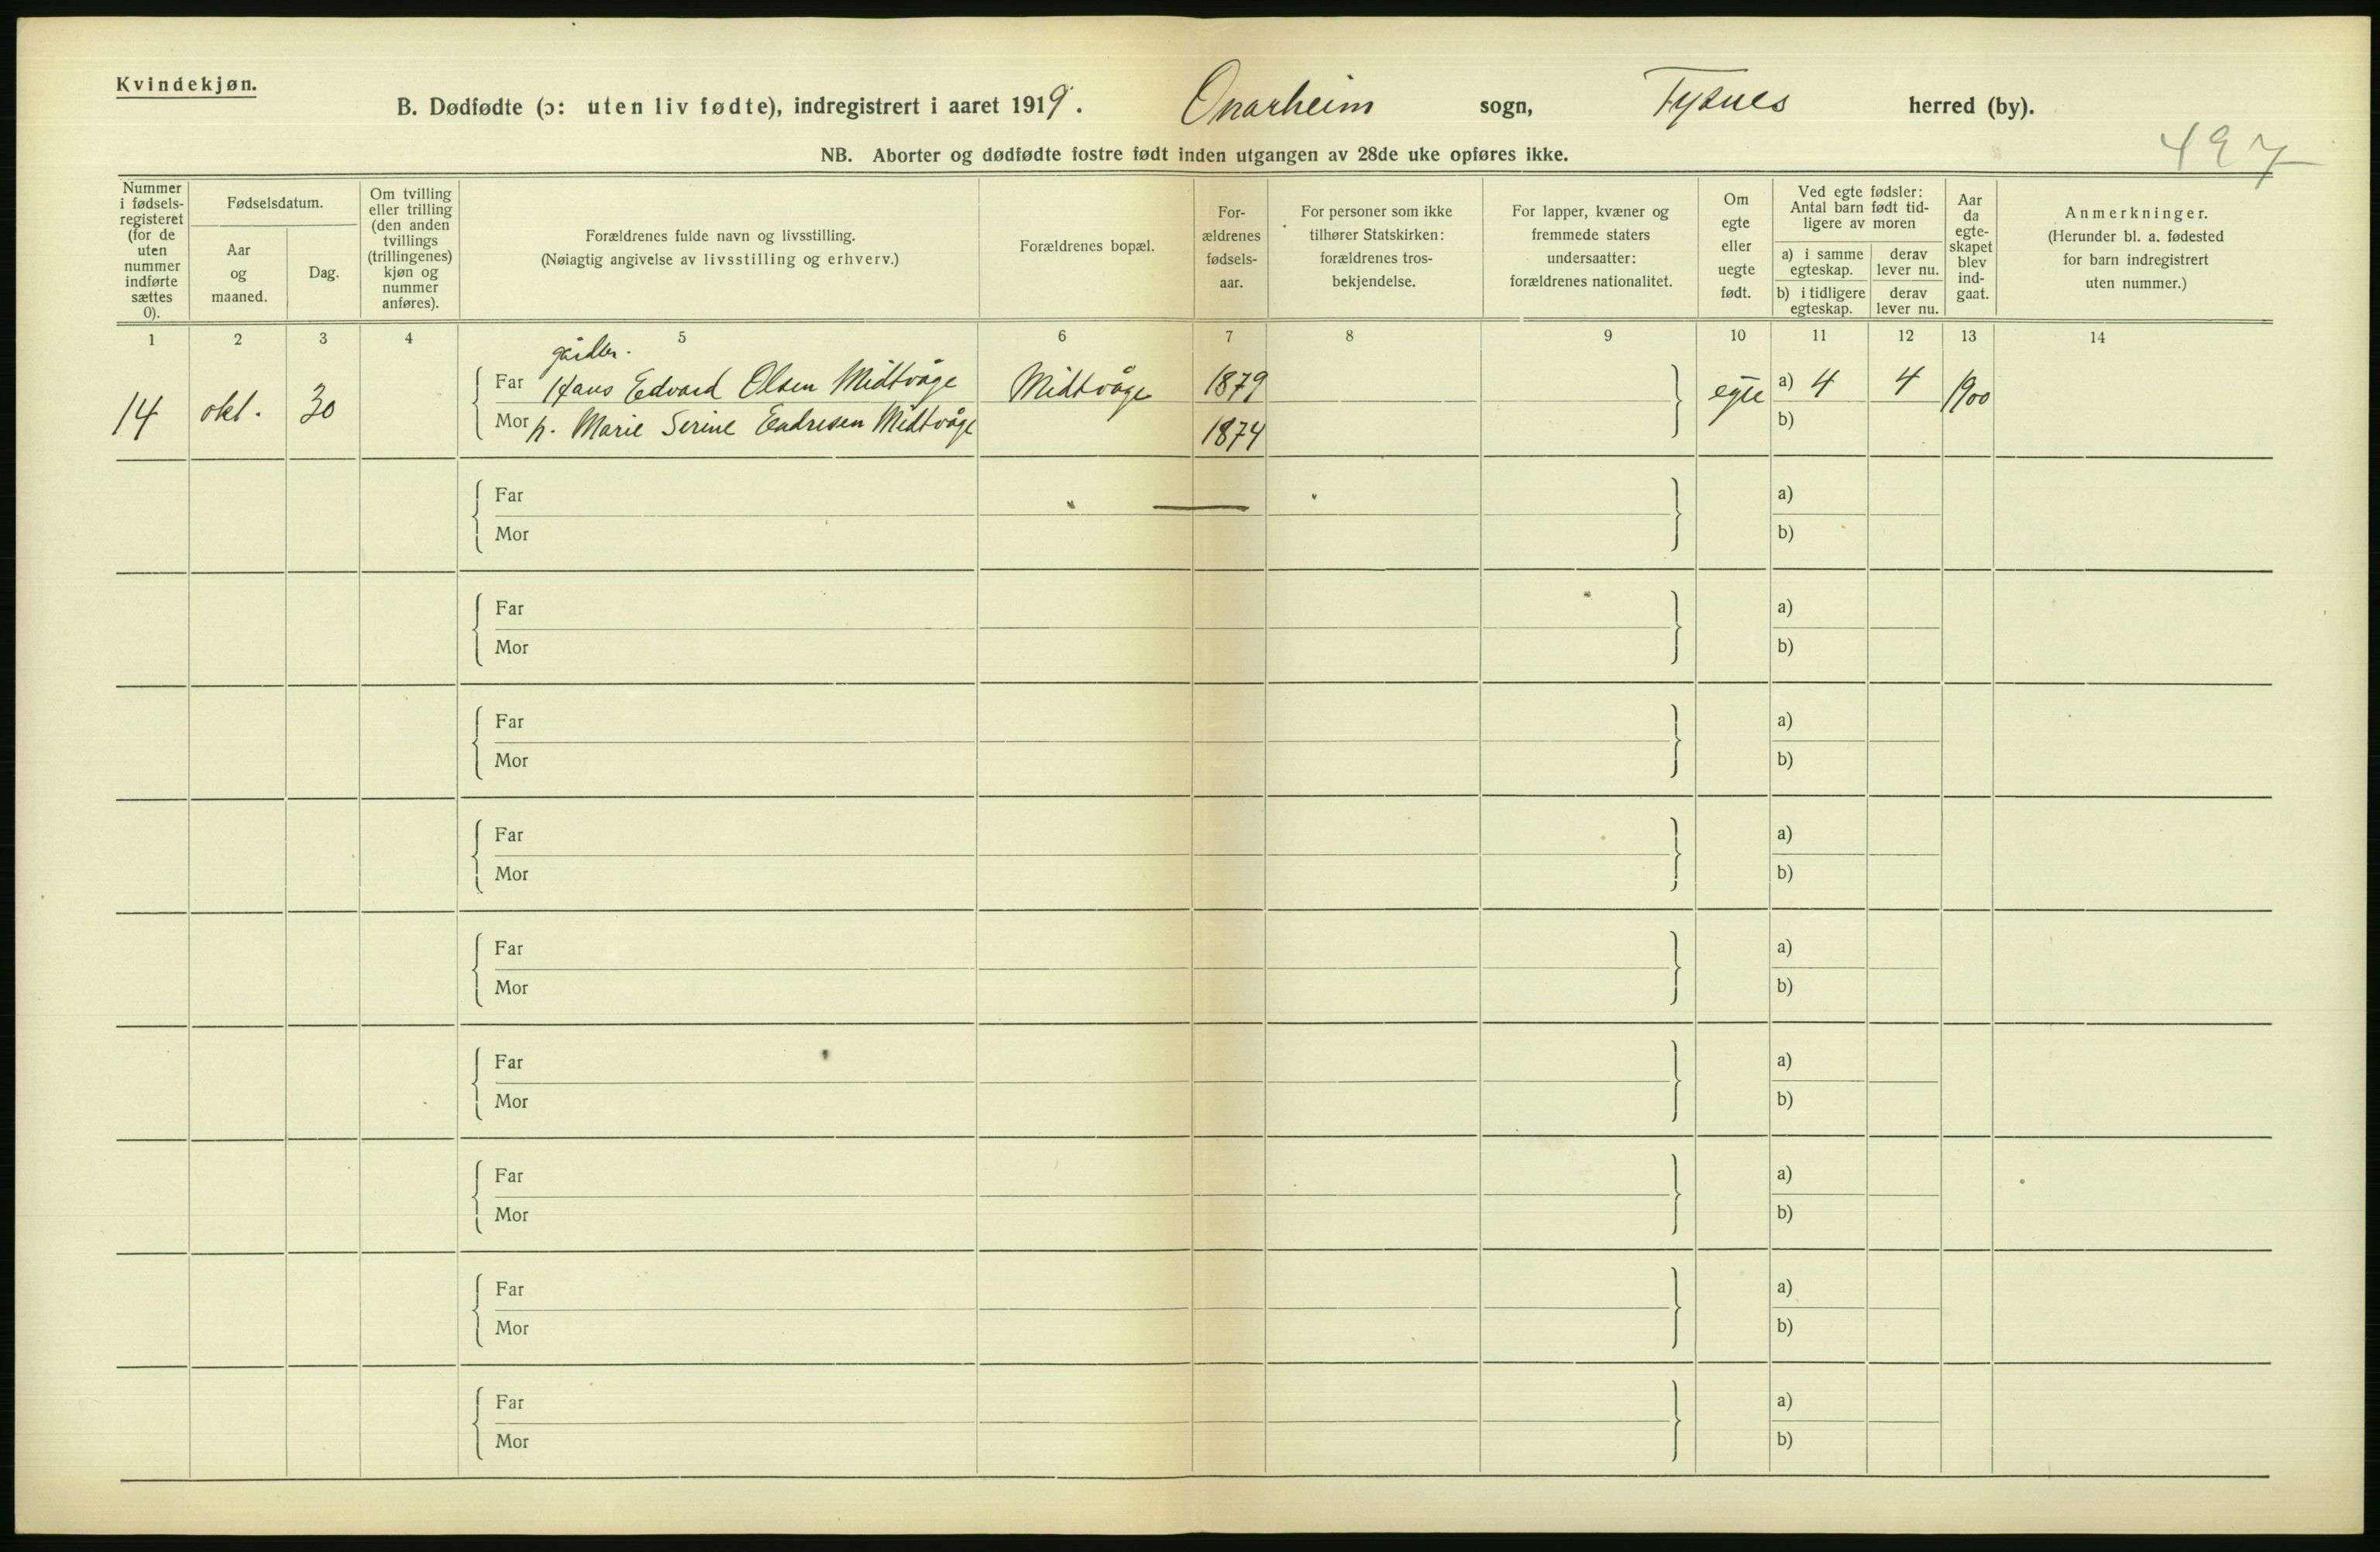 Kvindekjøn.
B. Dødfødte (ɔ: uten liv fødte), indregistrert i aaret 1919. Onarheim sogn, Tysnes herred (by).
497
NB. Aborter og dødfødte fostre født inden utgangen av 28de uke opføres ikke.
Nummer
i fødsels-
registeret
(for de
uten
nummer
indførte
sættes
0).
Fødselsdatum.
Aar
og
maaned.
Dag.
Om tvilling
eller trilling
(den anden
tvillings
(trillingenes)
kjøn og
nummer
anføres).
Forældrenes fulde navn og livsstilling.
(Nøiagtig angivelse av livsstilling og erhverv.)
Forældrenes bopæl.
For-
ældrenes
fødsels-
aar.
For personer som ikke
tilhører Statskirken:
forældrenes tros-
bekjendelse.
For lapper, kvæner og
fremmede staters
undersaatter:
forældrenes nationalitet.
Om
egte
eller
uegte
født.
Ved egte fødsler:
Antal barn født tid-
ligere av moren
a) i samme
egteskap.
derav
lever nu.
b) i tidligere
egteskap.
derav
lever nu.
Aar
da
egte-
skapet
blev
ind-
gaat.
Anmerkninger.
(Herunder bl. a. fødested
for barn indregistrert
uten nummer.)
1 2 3 4 5 6 7 8 9 10 11 12 13 14
gårdbr.
14 okt. 30 Far Hans Edvard Olsen Midtvåge Midtvåge 1879 egte a) 4 4 1900
Mor h. Marie Serine Endresen Midtvåge 1874 b)
Far a)
Mor b)
Far a)
Mor b)
Far a)
Mor b)
Far a)
Mor b)
Far a)
Mor b)
Far a)
Mor b)
Far a)
Mor b)
Far a)
Mor b)
Far a)
Mor b)